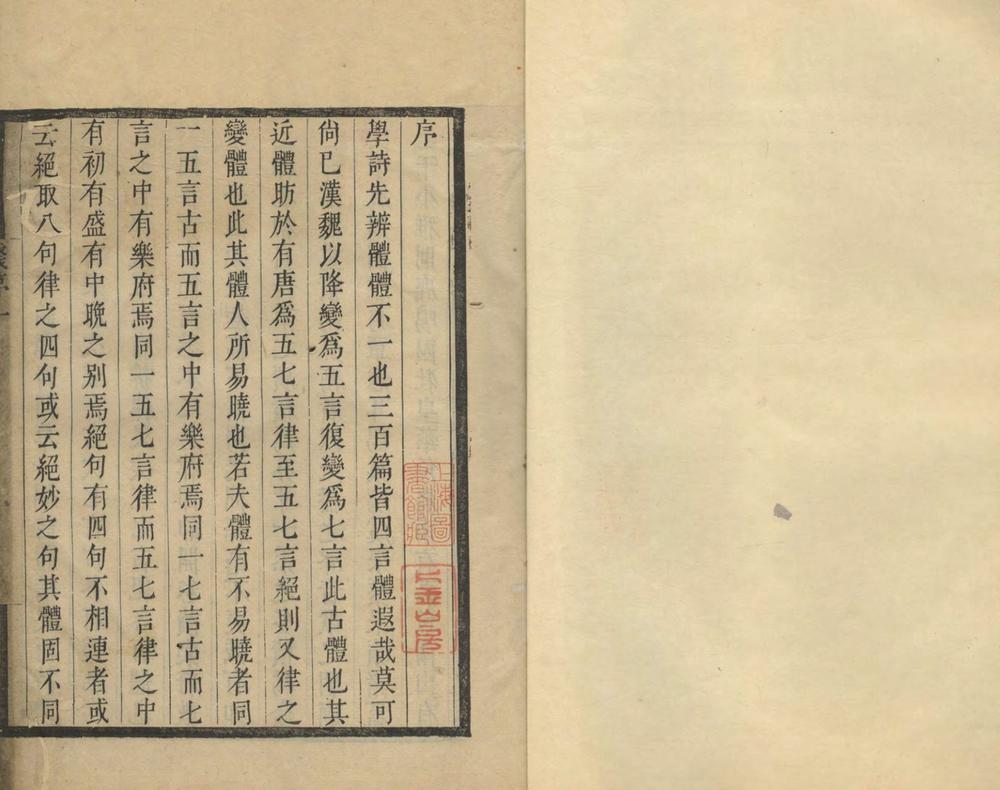 序
學詩先辨體體不一也三百篇皆四言體遐哉莫可
尙已漢魏以降變爲五言復變爲七言此古體也其
近體昉於有唐爲五七言律至五七言絕則又律之
變體也此其體人所易曉也若夫體有不易曉者同
一五言古而五言之中有樂府焉同一七言古而七
言之中有樂府焉同一五七言律而五七言律之中
有初有盛有中晚之别焉絕句有四句不相連者或
云絕取八句律之四句或云絕妙之句其體固不同
上海圖
書館藏